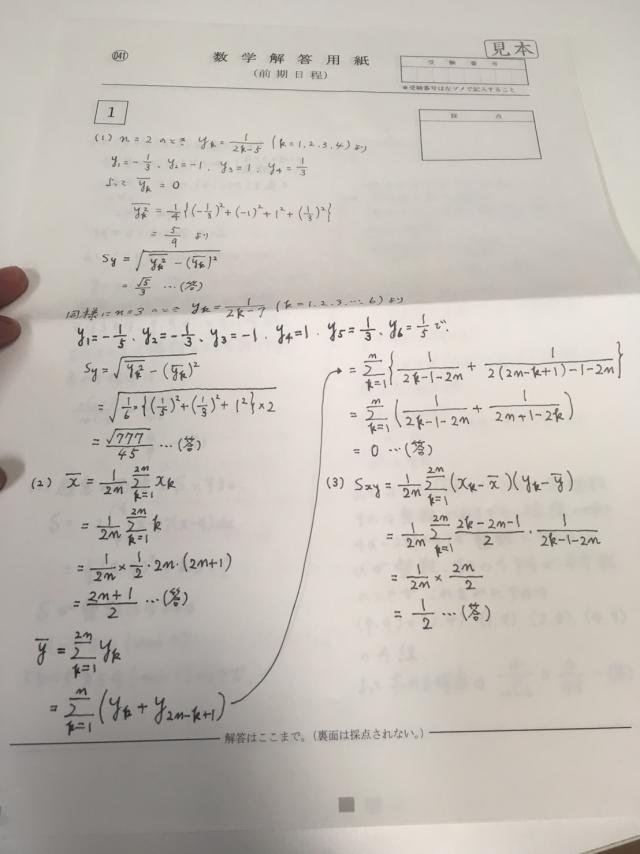 041
数学解答用紙
(前期日程)
見本
受験番号
※受験番号は左ヅメで記入すること
採点
1
(1) n=2のとき y_k = 1/(2k-5) (k=1,2,3,4)より
y₁=-1/3, y₂=-1, y₃=1, y₄=1/3
よって \overline{y_k} = 0
\overline{y_k²} = 1/4{(-1/3)²+(-1)²+1²+(1/3)²}
= 5/9 より
Sy = √(\overline{y_k²} - (\overline{y_k})²)
= √5/3 …(答)
同様にn=3のとき y_k = 1/(2k-7) (k=1,2,3,…,6)より
y₁=-1/5, y₂=-1/3, y₃=-1, y₄=1, y₅=1/3, y₆=1/5で、
Sy = √(\overline{y_k²} - (\overline{y_k})²)
= √(1/6×{(1/5)²+(1/3)²+1²}×2)
= √777/45 …(答)
(2) \overline{x} = 1/2n Σ_{k=1}^{2n} x_k
= 1/2n Σ_{k=1}^{2n} k
= 1/2n × 1/2 · 2n · (2n+1)
= (2n+1)/2 …(答)
\overline{y} = Σ_{k=1}^{2n} y_k
= Σ_{k=1}^{n} (y_k + y_{2n-k+1})
= Σ_{k=1}^{n} {1/(2k-1-2n) + 1/(2(2n-k+1)-1-2n)}
= Σ_{k=1}^{n} (1/(2k-1-2n) + 1/(2n+1-2k))
= 0 …(答)
(3) Sxy = 1/2n Σ_{k=1}^{2n} (x_k-\overline{x})(y_k-\overline{y})
= 1/2n Σ_{k=1}^{2n} (2k-2n-1)/2 · 1/(2k-1-2n)
= 1/2n × 2n/2
= 1/2 …(答)
解答はここまで。(裏面は採点されない。)